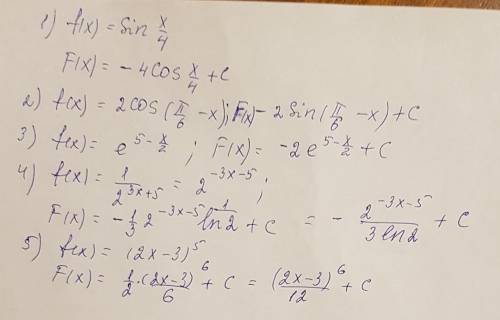 1) f(x) = sin x/4
F(x) = - 4 cos x/4 + C
2) f(x) = 2cos(π/6 - x); F(x) - 2 sin(π/6 - x) + C
3) f(x) = e^(5 - x/2) ; F(x) = -2e^(5 - x/2) + C
4) f(x) = 1/2^(3x+5) = 2^(-3x-5) ;
F(x) = - 1/3 2^(-3x-5) 1/ln2 + C = - 2^(-3x-5)/3ln2 + C
5) f(x) = (2x-3)^5
F(x) = 1/2 · (2x-3)^6/6 + C = (2x-3)^6/12 + C